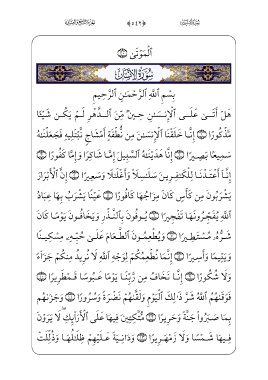 ٱلْمَوْتَىٰ ۝
سُورَةُ الإِنسَانِ
بِسْمِ ٱللَّهِ ٱلرَّحْمَٰنِ ٱلرَّحِيمِ
هَلْ أَتَىٰ عَلَى ٱلْإِنسَٰنِ حِينٌ مِّنَ ٱلدَّهْرِ لَمْ يَكُن شَيْـًٔا
مَّذْكُورًا ۝ إِنَّا خَلَقْنَا ٱلْإِنسَٰنَ مِن نُّطْفَةٍ أَمْشَاجٍ نَّبْتَلِيهِ فَجَعَلْنَٰهُ
سَمِيعًۢا بَصِيرًا ۝ إِنَّا هَدَيْنَٰهُ ٱلسَّبِيلَ إِمَّا شَاكِرًا وَإِمَّا كَفُورًا ۝
إِنَّآ أَعْتَدْنَا لِلْكَٰفِرِينَ سَلَٰسِلَا۟ وَأَغْلَٰلًا وَسَعِيرًا ۝ إِنَّ ٱلْأَبْرَارَ
يَشْرَبُونَ مِن كَأْسٍ كَانَ مِزَاجُهَا كَافُورًا ۝ عَيْنًا يَشْرَبُ بِهَا عِبَادُ
ٱللَّهِ يُفَجِّرُونَهَا تَفْجِيرًا ۝ يُوفُونَ بِٱلنَّذْرِ وَيَخَافُونَ يَوْمًا كَانَ
شَرُّهُۥ مُسْتَطِيرًا ۝ وَيُطْعِمُونَ ٱلطَّعَامَ عَلَىٰ حُبِّهِۦ مِسْكِينًا
وَيَتِيمًا وَأَسِيرًا ۝ إِنَّمَا نُطْعِمُكُمْ لِوَجْهِ ٱللَّهِ لَا نُرِيدُ مِنكُمْ جَزَآءً
وَلَا شُكُورًا ۝ إِنَّا نَخَافُ مِن رَّبِّنَا يَوْمًا عَبُوسًا قَمْطَرِيرًا ۝
فَوَقَىٰهُمُ ٱللَّهُ شَرَّ ذَٰلِكَ ٱلْيَوْمِ وَلَقَّىٰهُمْ نَضْرَةً وَسُرُورًا ۝ وَجَزَىٰهُم
بِمَا صَبَرُوا۟ جَنَّةً وَحَرِيرًا ۝ مُّتَّكِـِٔينَ فِيهَا عَلَى ٱلْأَرَآئِكِ لَا يَرَوْنَ
فِيهَا شَمْسًا وَلَا زَمْهَرِيرًا ۝ وَدَانِيَةً عَلَيْهِمْ ظِلَٰلُهَا وَذُلِّلَتْ